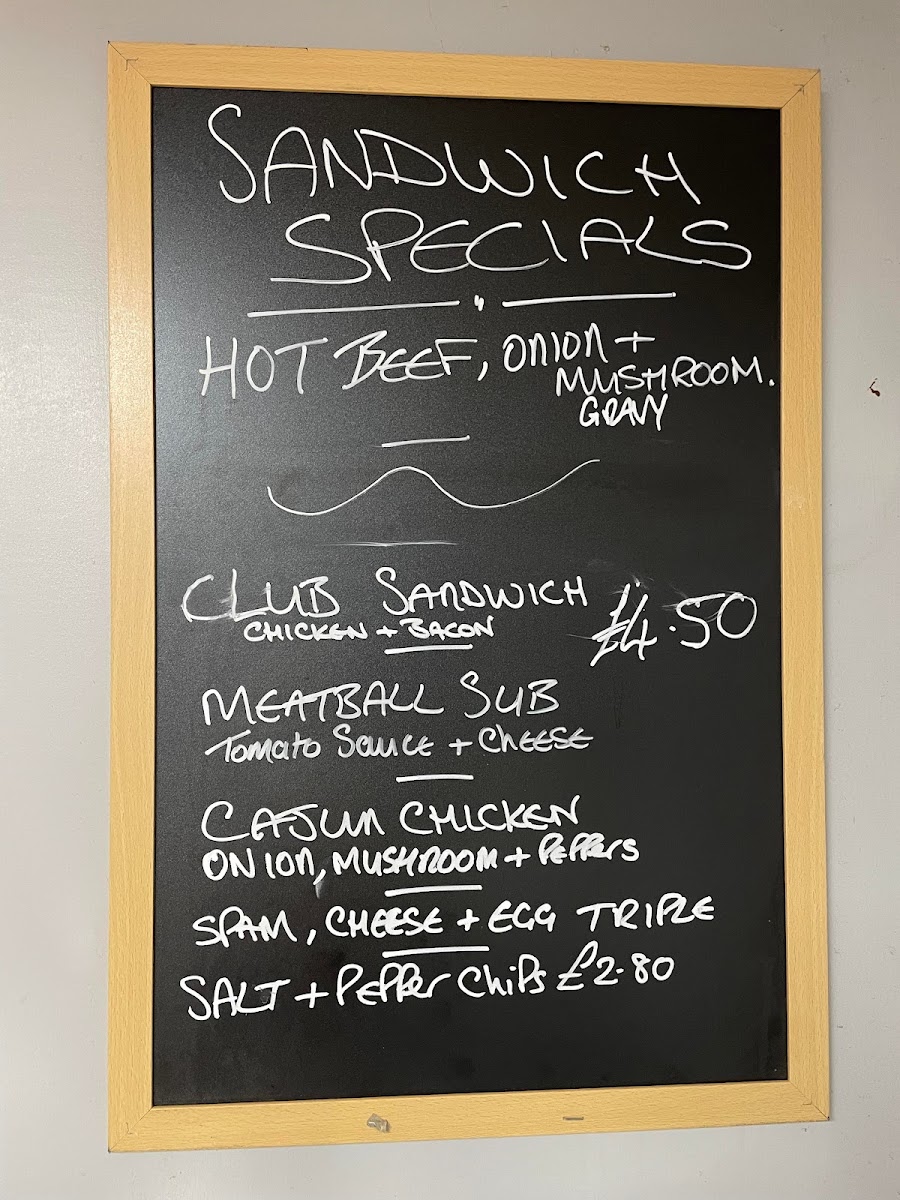 SANDWICH
SPECIALS
HOT BEEF, ONION +
MUSHROOM.
GRAVY
CLUB SANDWICH £4.50
CHICKEN + BACON
MEATBALL SUB
Tomato Sauce + CHEESE
CAJUN CHICKEN
ONION, MUSHROOM + PEPPERS
SPAM, CHEESE + EGG TRIPLE
SALT + PEPPER Chips £2.80